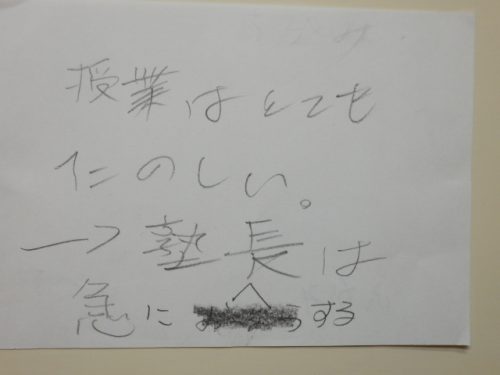 授業はとても
たのしい。
→塾長は
急に する